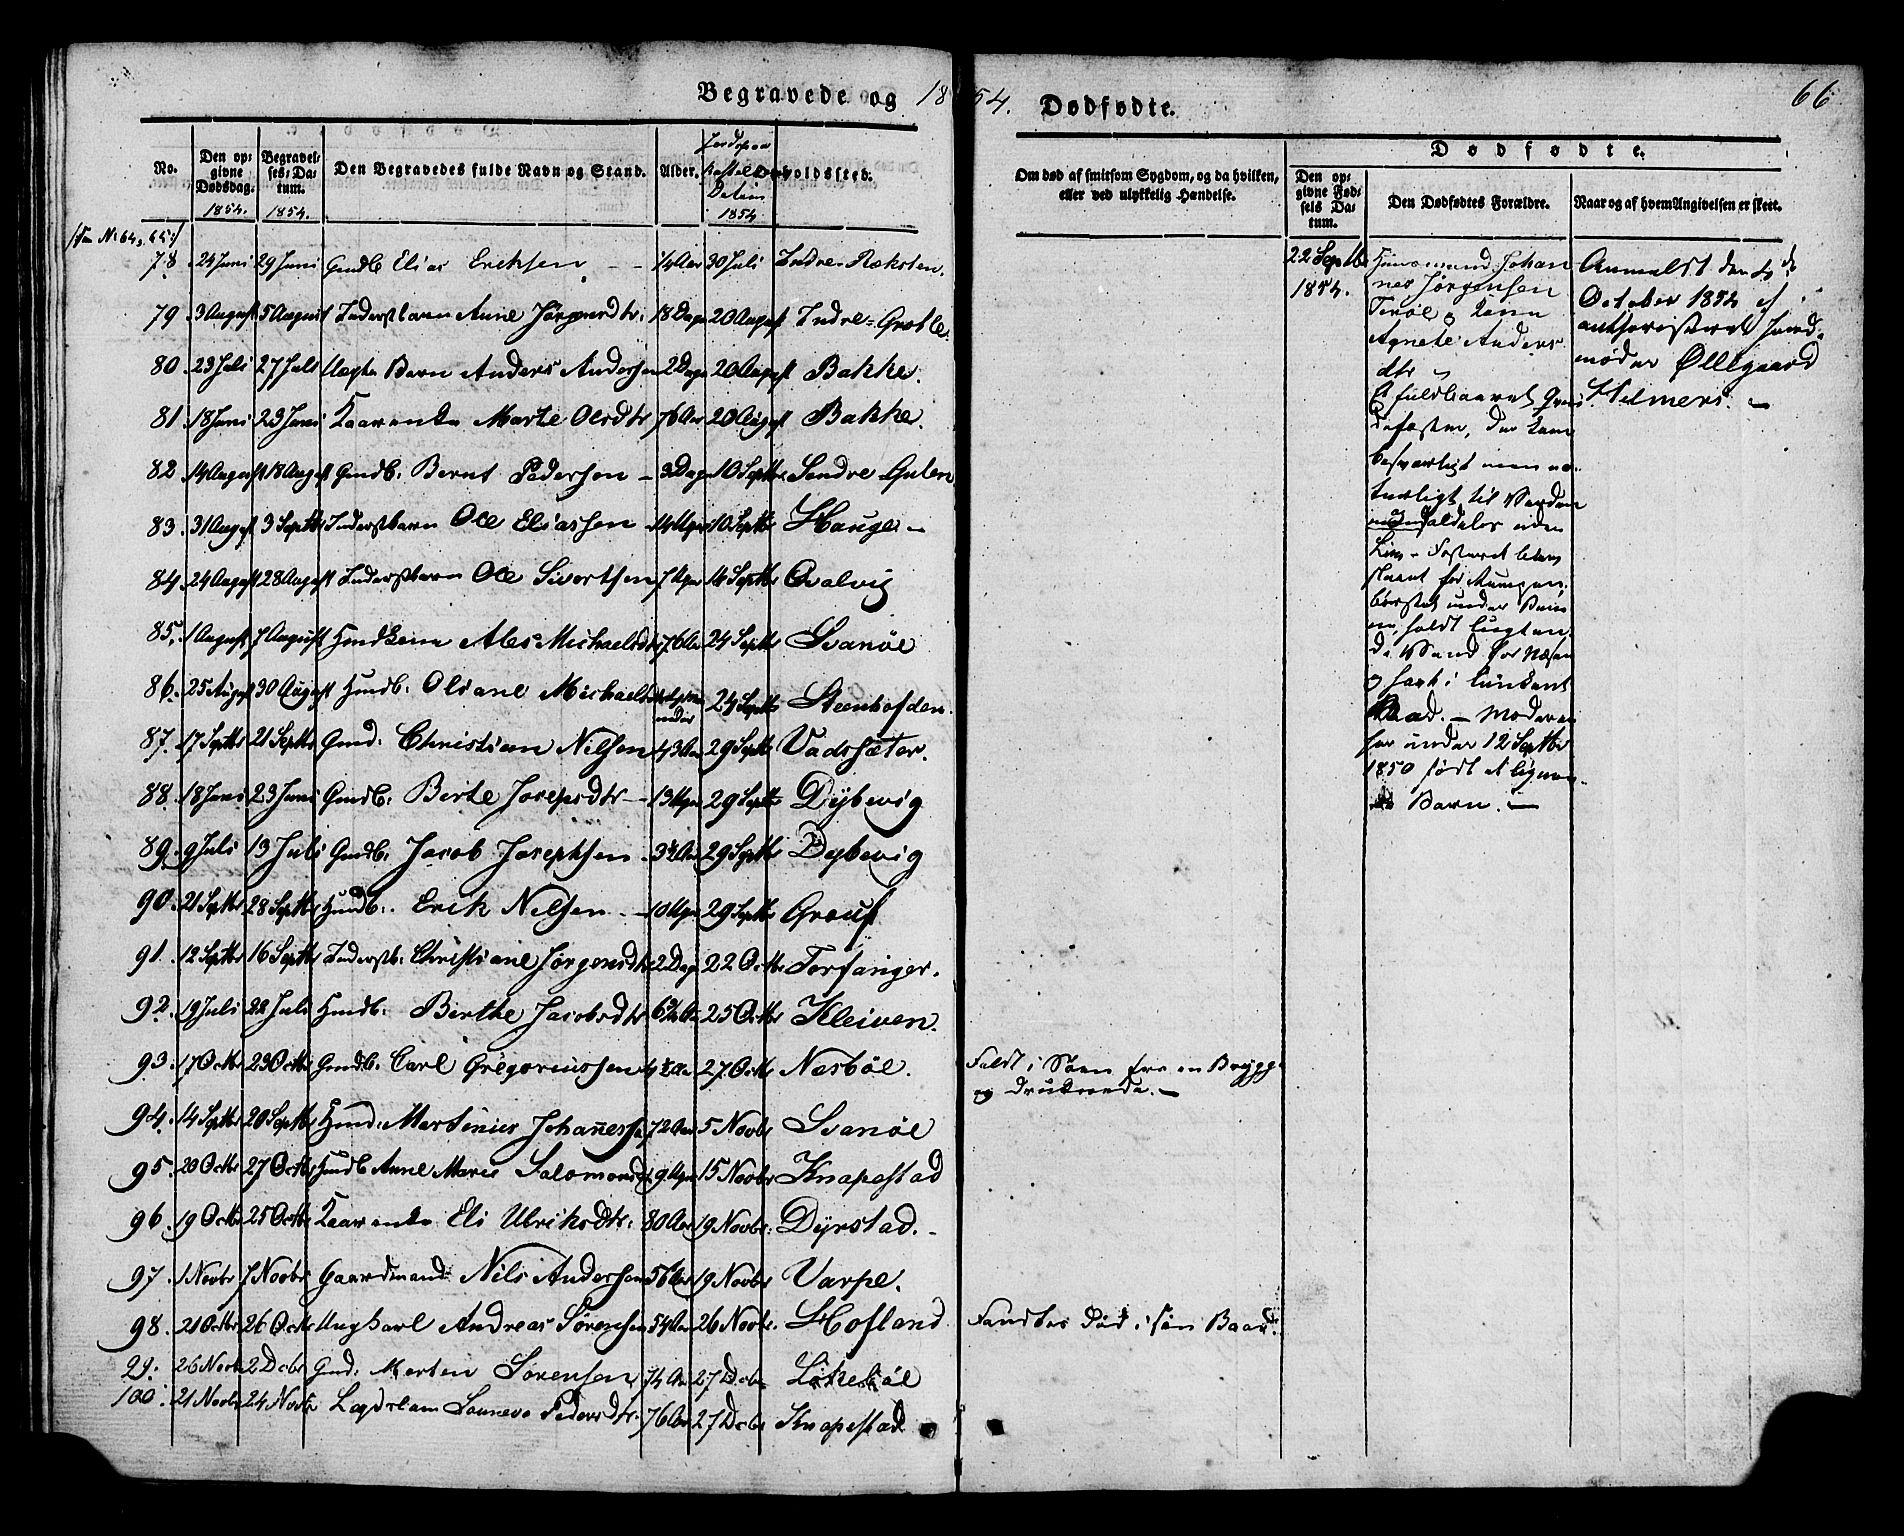 Begravede og 18
No.
Den op=
givne
Dødsdag.
1854.
Begravel=
ses=Da=
tum.
1854.
Den Begravedes fulde Navn og Stand.
Alder.
Datum
1854
Opholdssted.
78. 24 Juni 29 Juni Gmdb. Elias Eriksen 30 Juli Indre-Ræksten.
79 3 August 5 August Anne Jørgensdtr. 18 Dage 20 August Indre=Grøtle.
80. 23 Juli 27 Juli Uegte Barn Anders Andersen 2 Dage 20 August Bakke.
81. 18 Juni 23 Juni Kaarenke Marte Olsdtr 76 Aar 20 August Bakke.
82. 14 August 18 August Gmdb. Bernt Pedersen 3 Dage 10 Septbr. Søndre-Gulen
83. 31 August 3 Septbr Ole Eliassen 10 Septbr Hauge
84. 24 August 28 August Ole Sivertsen Qvalvig
85. 1 August 7 August Ales Michaelsdtr 76 Aar 24 Septbr Svanöe
86. 25 August 30 August Hmdb. Oliane Michaelsdtr 24 Septbr Steenhofden.
87. 17 Septbr 21 Septbr Gmd. Christian Nilsen 43 Aar 29 Septbr Vadsæter.
88. 18 Juni 23 Juni Gmdb. Birte Josepsdtr 13 Uger 29 Septbr Dybevig
89. 9 Juli 13 Juli Gmdb. Jacob Josephsen 29 Septbr Dybevig
90. 21 Septbr 28 Septbr Hmdb. Erik Nilsen 10 Uger 29 Septbr
91. 12 Septbr 16 Septbr Christiane Jørgensdtr 2 Dage 22 Octbr Torfanger.
92. 19 Juli 22 Juli Hmdb. Birthe Jacobsdtr 25 Octbr Kleiven.
93. 17 Octbr 23 Octbr Gmdb. Carl Gregoriussen 27 Octbr Nesböe.
94. 14 Septbr 20 Septbr Hmd. Martinus Johañessen 72 Aar 5 Novbr Svanöe
95. 20 Octbr 27 Octbr Hmdb Anne Marie Salomonsdtr 9 Uger 15 Novbr Knapestad
96. 19 Octbr 25 Octbr Kaarenke Eli Ulriksdtr. 80 Aar 19 Novbr. Dyrstad.
97. 1 Novbr 7 Novbr Gaardmand Nils Andersen 56 Aar 19 Novbr Varpe.
98. 21 Octbr 26 Octbr Ungkarl Andreas Sørensen 54 Aar 26 Novbr. Hofland
99. 26 Novbr 2 Decbr Gmd. Morten Sørensen 74 Aar 27 Decbr Likeböe
100. 21 Novbr 24 Novbr Lægdslem Pedersdtr. 76 Aar 27 Decbr Knapestad
54. Dødfødte. 66
Om død af smitsom Sygdom, og da hvilken,
eller ved ulykkelig Hændelse.
Faldt i Søen fra en Brygge
og druknede.
Fandtes død i sin Baad.
Dødfødte.
Den op=
givne Fød=
sels Da=
tum.
Den Dødfødtes Forældre.
Naar og af hvem Angivelsen er skeet.
22 Septbr
1854.
Huusmand Johan
nes Jørgensen
Kone
Agnete Anders
dtr
Et fuldbaaret
besværligt men na
turligt til Verden
aldeles uden
Liv
under
holdt
Vand for Næsen
og sat i lunkent
Baad. Moderen
har under 12 Septbr
1850 født et lignen
de Barn.
Anmeldt den 4de
October 1854 af
authoriseret Jord=
moder Øllegaard
Helmers.